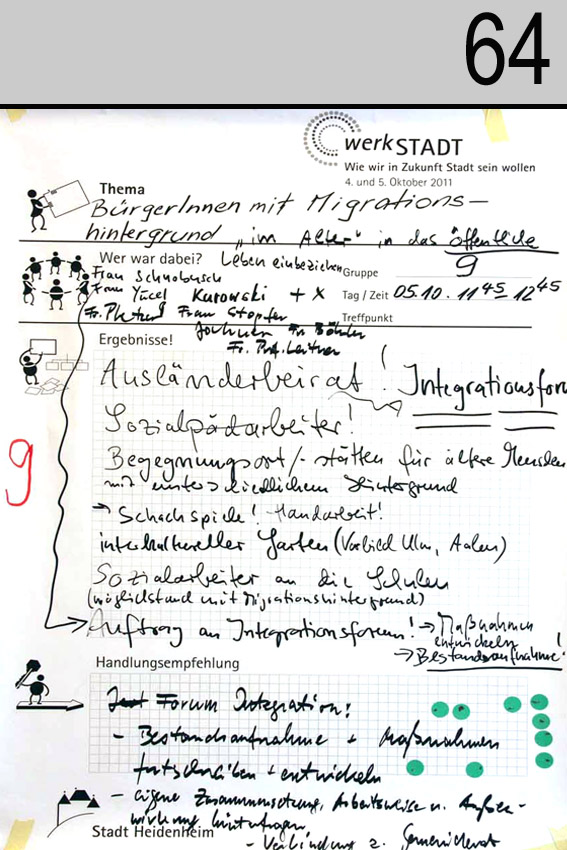 64
werkSTADT
Wie wir in Zukunft Stadt sein wollen
4. und 5. Oktober 2011
Thema
BürgerInnen mit Migrations-
hintergrund „im Alter" in das öffentliche
Wer war dabei? Leben einbeziehen Gruppe 9
Frau Schnobusch
Frau Yücel Kurowski + x Tag / Zeit 05.10. 11 45 - 12 45
Frau Stopfer Treffpunkt
Ergebnisse!
Ausländerbeirat! Integrationsfor
Sozialpädarbeiter!
Begegnungsort/-stätten für ältere Menschen
mit unterschiedlichem Hintergrund
9
→ Schachspiele! Handarbeit!
interkultureller Garten (Vorbild Ulm, Aalen)
Sozialarbeiter an die Schulen
(möglichst mit Migrationshintergrund)
Auftrag an Integrationsforum! → Maßnahmen
entwickeln
→ Bestandsaufnahme!
Handlungsempfehlung
Forum Integration:
- Bestandsaufnahme + Maßnahmen
fortschreiben + entwickeln
- eigene Zusammensetzung, Arbeitsweise u. Außen-
wirkung hinterfragen
Stadt Heidenheim
- Verbindung z. Gemeinderat